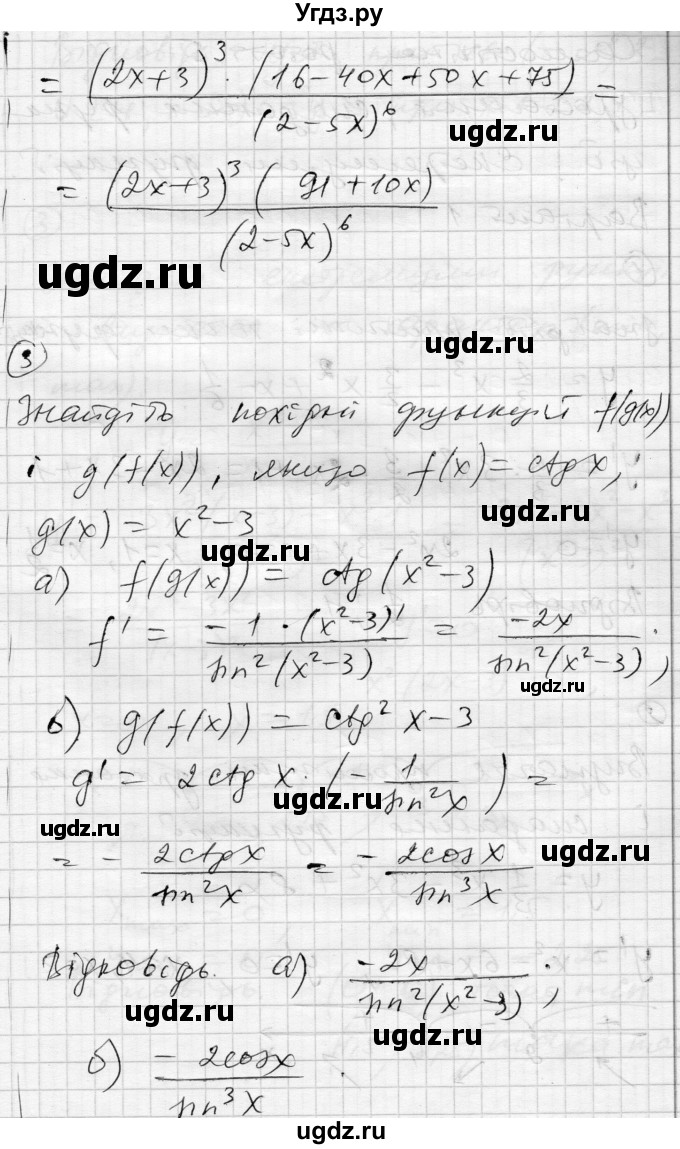 Угдз.ру
= (2x+3)³ · (16 - 40x + 50x + 75) / (2-5x)⁶ =
ugdz.ru
= (2x+3)³ (91 + 10x) / (2-5x)⁶
ugdz.ru
ugdz.ru
3
Знайдіть похідні функцій f(g(x))
і g(f(x)), якщо f(x) = ctg x,
ugdz.ru
g(x) = x² - 3
ugdz.ru
а) f(g(x)) = ctg(x² - 3)
f' = -1 · (x² - 3)' / sin²(x² - 3) = -2x / sin²(x² - 3);
ugdz.ru
б) g(f(x)) = ctg² x - 3
g' = 2ctg x · (- 1 / sin² x) =
ugdz.ru
ugdz.ru
ugdz.ru
= - 2ctg x / sin² x = - 2cos x / sin³ x
Відповідь. а) -2x / sin²(x² - 3);
ugdz.ru
ugdz.ru
б) - 2cos x / sin³ x.
ugdz.ru